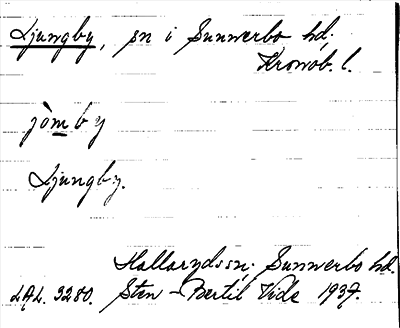 Ljungby, sn i Sunnerbo hd,
Kronob. l.
jòmby
Ljungby.
Hallarydssn, Sunnerbo hd.
LAL. 3280. Sten-Bertil Vide 1937.